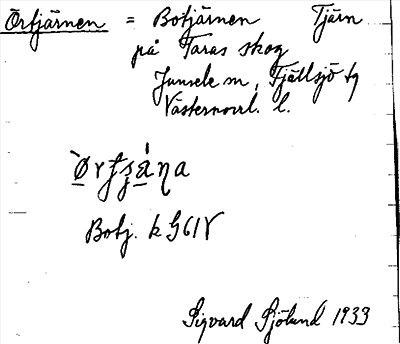 Örtjärnen = Botjärnen Tjärn
på Taras skog
Junsele sn, Fjällsjö tg
Västernorrl. l.
Botj. k G61V
Sigvard Sjölund 1933